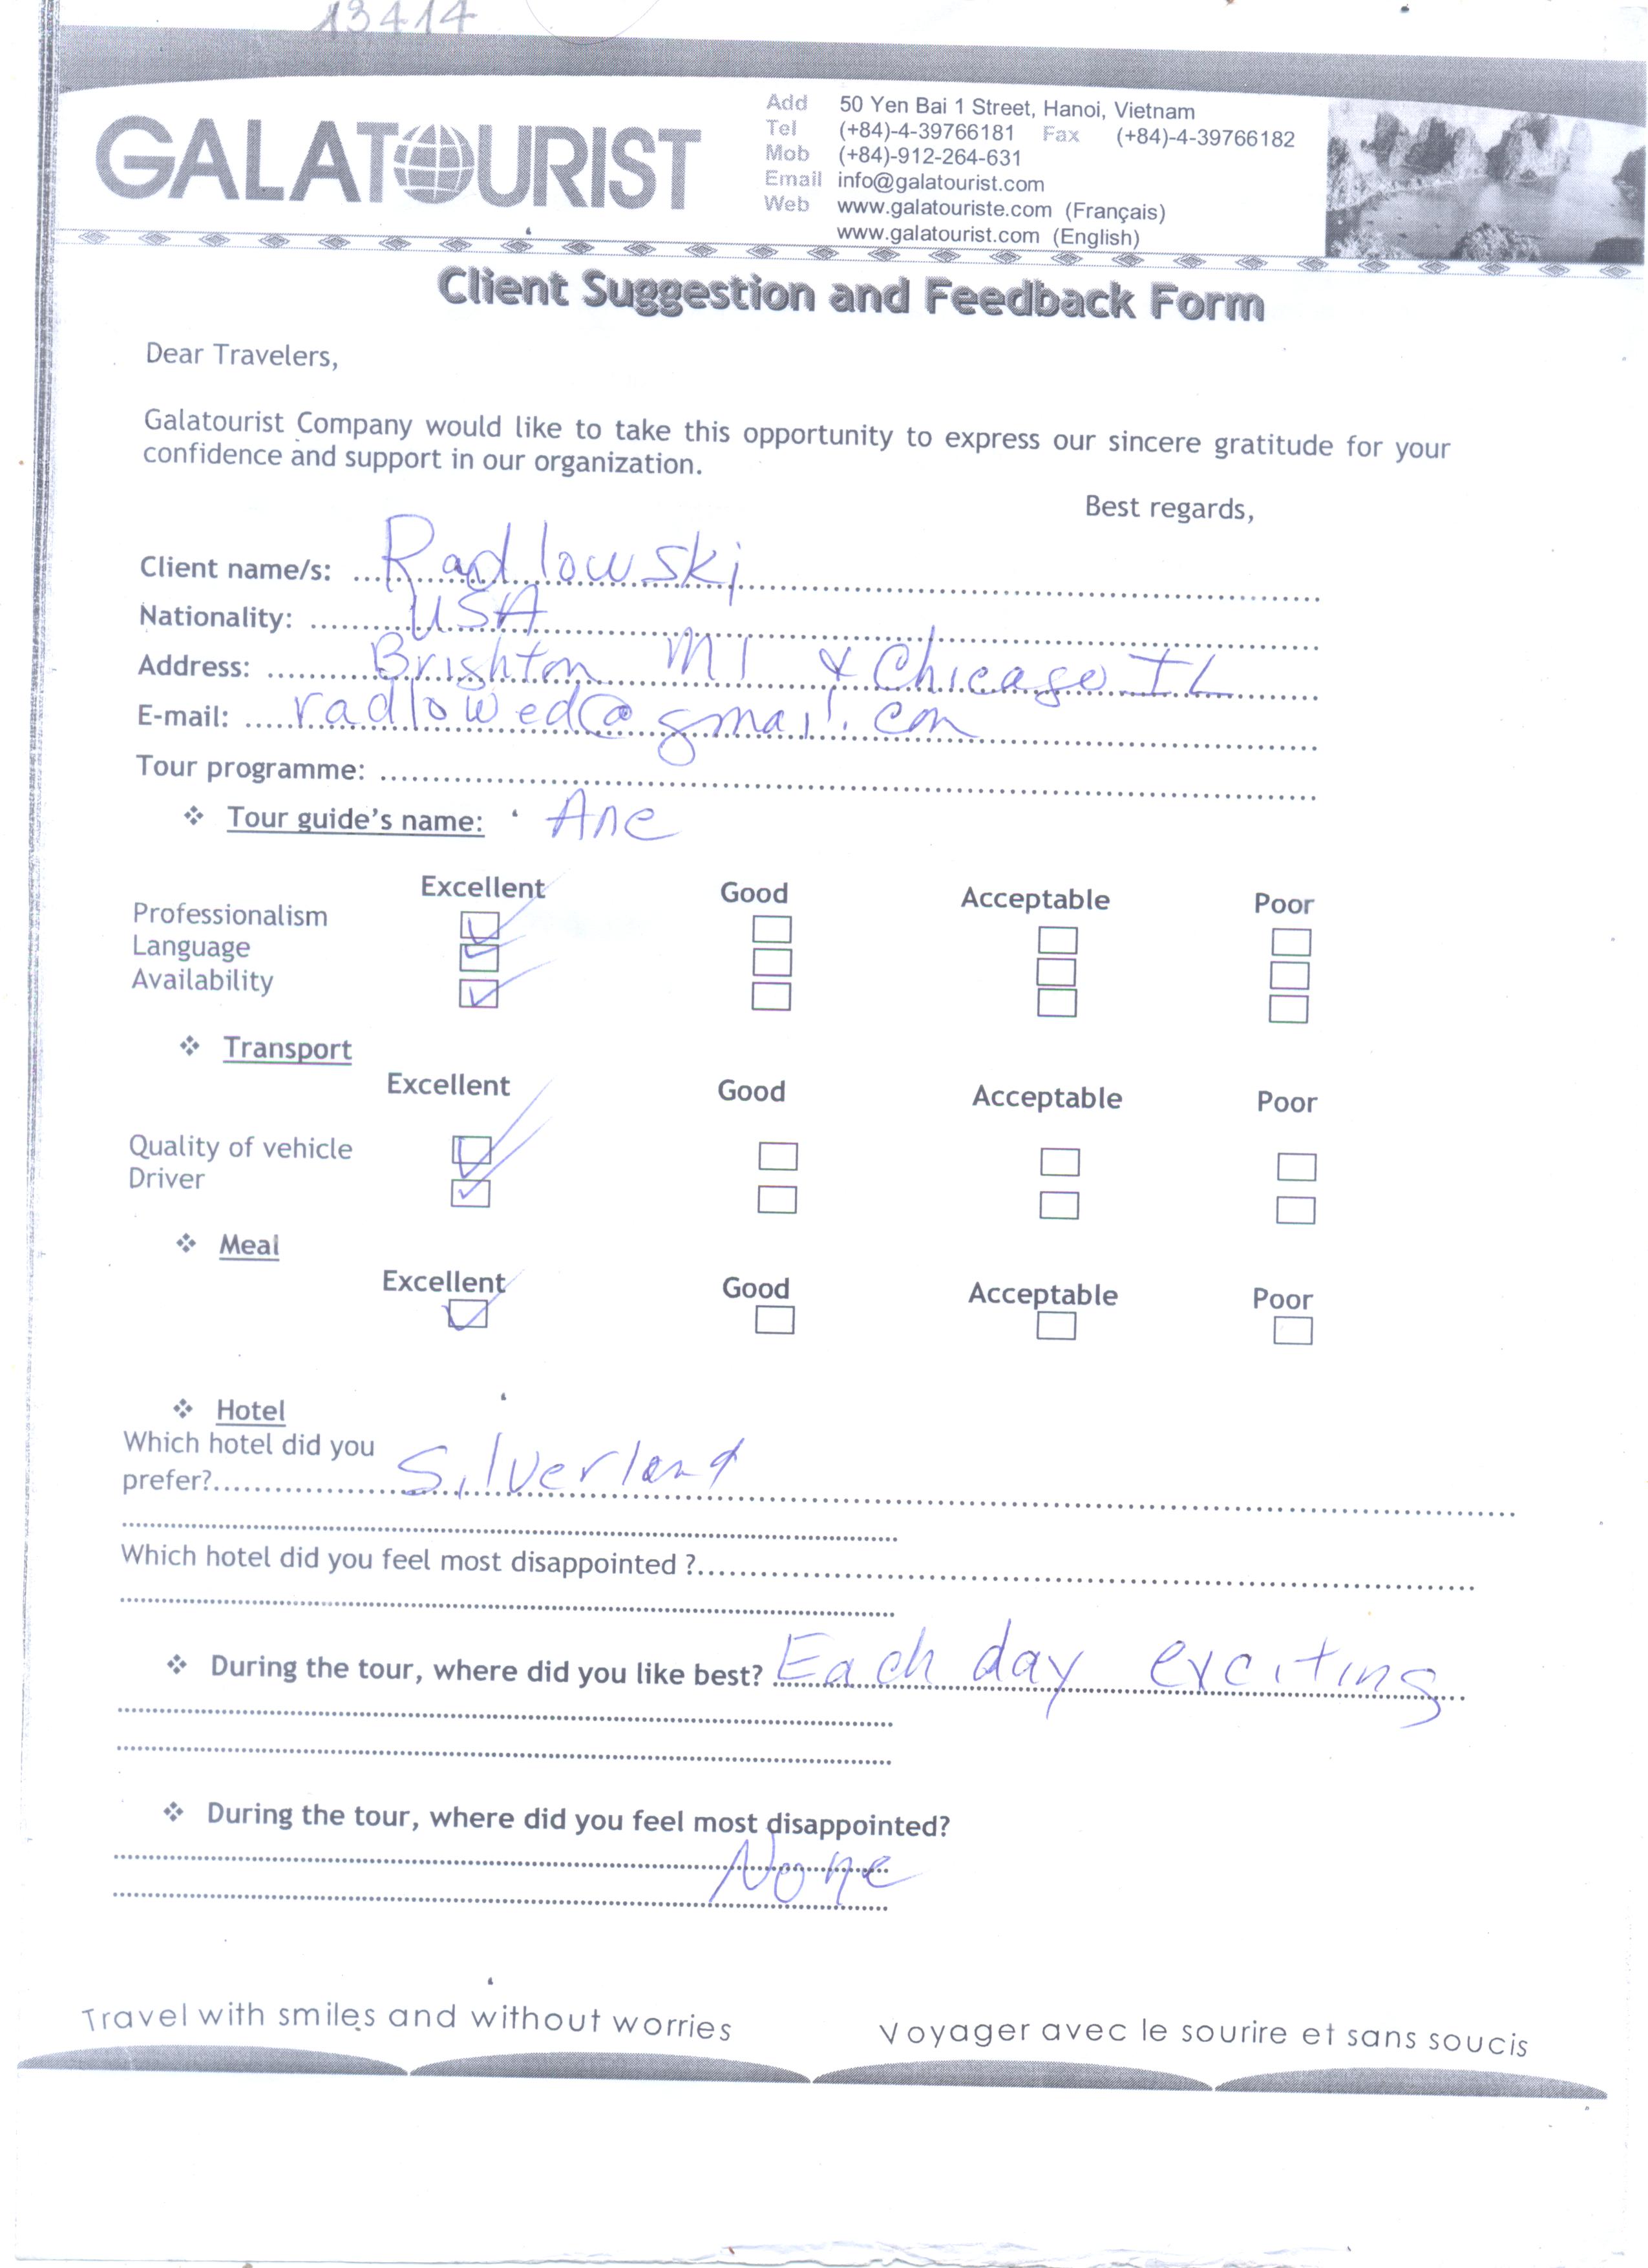 13414
GALATOURIST
Add 50 Yen Bai 1 Street, Hanoi, Vietnam
Tel (+84)-4-39766181 Fax (+84)-4-39766182
Mob (+84)-912-264-631
Email info@galatourist.com
Web www.galatouriste.com (Français)
www.galatourist.com (English)
Client Suggestion and Feedback Form
Dear Travelers,
Galatourist Company would like to take this opportunity to express our sincere gratitude for your
confidence and support in our organization.
Best regards,
Client name/s: Radlowski
Nationality: USA
Address: Brighton MI & Chicago IL
E-mail: radlowed@gmail.com
Tour programme:
❖ Tour guide's name: Ane
Excellent Good Acceptable Poor
Professionalism
Language
Availability
❖ Transport
Excellent Good Acceptable Poor
Quality of vehicle
Driver
❖ Meal
Excellent Good Acceptable Poor
❖ Hotel
Which hotel did you
prefer? Silverland
Which hotel did you feel most disappointed ?
❖ During the tour, where did you like best? Each day exciting
❖ During the tour, where did you feel most disappointed?
None
Travel with smiles and without worries Voyager avec le sourire et sans soucis